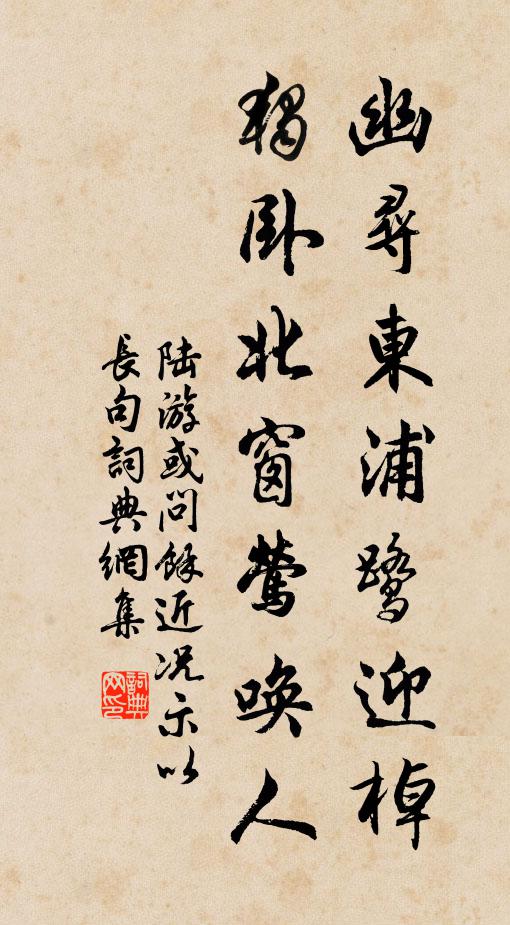 幽尋東浦鷺迎棹
獨臥北窗鶯喚人
陸游或問餘近況示以
長句詞典網集
詞典
网印